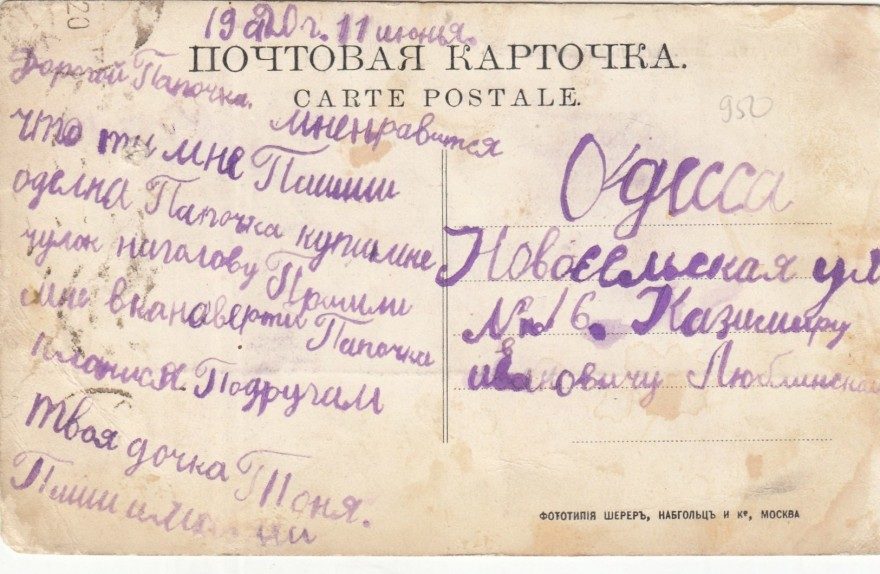 20
19 20 г. 11 июнья.
ПОЧТОВАЯ КАРТОЧКА.
CARTE POSTALE.
950
Дорогой Папочка.
мненравится
что ты мне Пишиш
оделна Папочка купимне
чулок наголову Пришли
мне вканверти Папочка
кланися Подручам
твоя дочка Тоня.
Пиши
Одесса
Новосельская ул
№ 16. Казимиру
ивановичу Люблинском
ФОТОТИПІЯ ШЕРЕРЪ, НАБГОЛЬЦЪ И Кº, МОСКВА